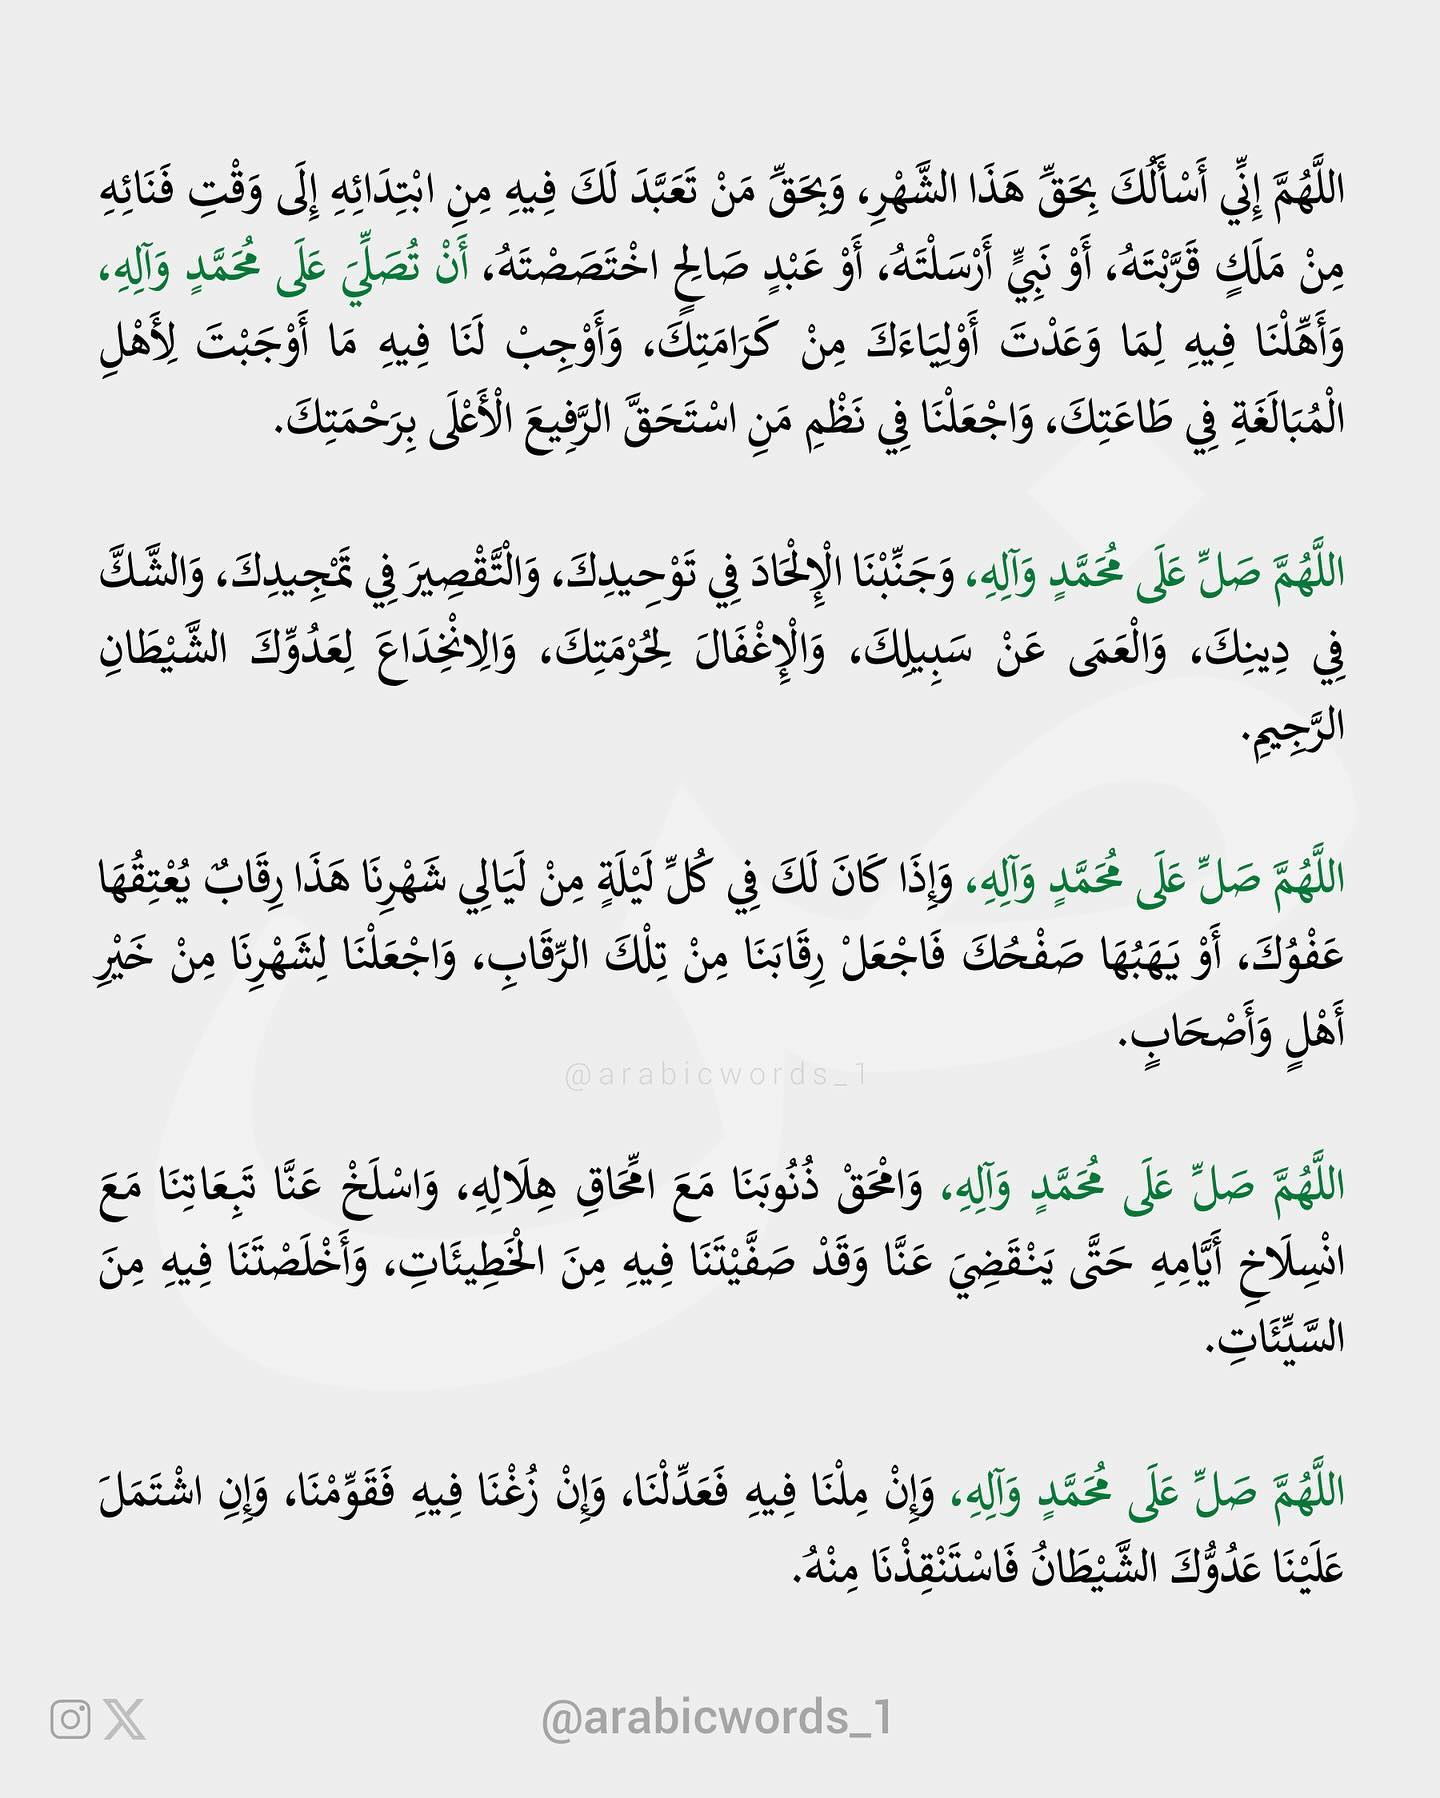 اللَّهُمَّ إِنِّي أَسْأَلُكَ بِحَقِّ هَذَا الشَّهْرِ، وَبِحَقِّ مَنْ تَعَبَّدَ لَكَ فِيهِ مِنِ ابْتِدَائِهِ إِلَى وَقْتِ فَنَائِهِ
مِنْ مَلَكٍ قَرَّبْتَهُ، أَوْ نَبِيٍّ أَرْسَلْتَهُ، أَوْ عَبْدٍ صَالِحٍ اخْتَصَصْتَهُ، أَنْ تُصَلِّيَ عَلَى مُحَمَّدٍ وَآلِهِ،
وَأَهِّلْنَا فِيهِ لِمَا وَعَدْتَ أَوْلِيَاءَكَ مِنْ كَرَامَتِكَ، وَأَوْجِبْ لَنَا فِيهِ مَا أَوْجَبْتَ لِأَهْلِ
الْمُبَالَغَةِ فِي طَاعَتِكَ، وَاجْعَلْنَا فِي نَظْمِ مَنِ اسْتَحَقَّ الرَّفِيعَ الْأَعْلَى بِرَحْمَتِكَ.
اللَّهُمَّ صَلِّ عَلَى مُحَمَّدٍ وَآلِهِ، وَجَنِّبْنَا الْإِلْحَادَ فِي تَوْحِيدِكَ، وَالْتَّقْصِيرَ فِي تَمْجِيدِكَ، وَالشَّكَّ
فِي دِينِكَ، وَالْعَمَى عَنْ سَبِيلِكَ، وَالْإِغْفَالَ لِحُرْمَتِكَ، وَالِانْخِدَاعَ لِعَدُوِّكَ الشَّيْطَانِ
الرَّجِيمِ.
اللَّهُمَّ صَلِّ عَلَى مُحَمَّدٍ وَآلِهِ، وَإِذَا كَانَ لَكَ فِي كُلِّ لَيْلَةٍ مِنْ لَيَالِي شَهْرِنَا هَذَا رِقَابٌ يُعْتِقُهَا
عَفْوُكَ، أَوْ يَهَبُهَا صَفْحُكَ فَاجْعَلْ رِقَابَنَا مِنْ تِلْكَ الرِّقَابِ، وَاجْعَلْنَا لِشَهْرِنَا مِنْ خَيْرِ
أَهْلٍ وَأَصْحَابٍ.
@arabicwords_1
اللَّهُمَّ صَلِّ عَلَى مُحَمَّدٍ وَآلِهِ، وَامْحَقْ ذُنُوبَنَا مَعَ امِّحَاقِ هِلَالِهِ، وَاسْلَخْ عَنَّا تَبِعَاتِنَا مَعَ
انْسِلَاخِ أَيَّامِهِ حَتَّى يَنْقَضِيَ عَنَّا وَقَدْ صَفَّيْتَنَا فِيهِ مِنَ الْخَطِيئَاتِ، وَأَخْلَصْتَنَا فِيهِ مِنَ
السَّيِّئَاتِ.
اللَّهُمَّ صَلِّ عَلَى مُحَمَّدٍ وَآلِهِ، وَإِنْ مِلْنَا فِيهِ فَعَدِّلْنَا، وَإِنْ زُغْنَا فِيهِ فَقَوِّمْنَا، وَإِنِ اشْتَمَلَ
عَلَيْنَا عَدُوُّكَ الشَّيْطَانُ فَاسْتَنْقِذْنَا مِنْهُ.
@arabicwords_1